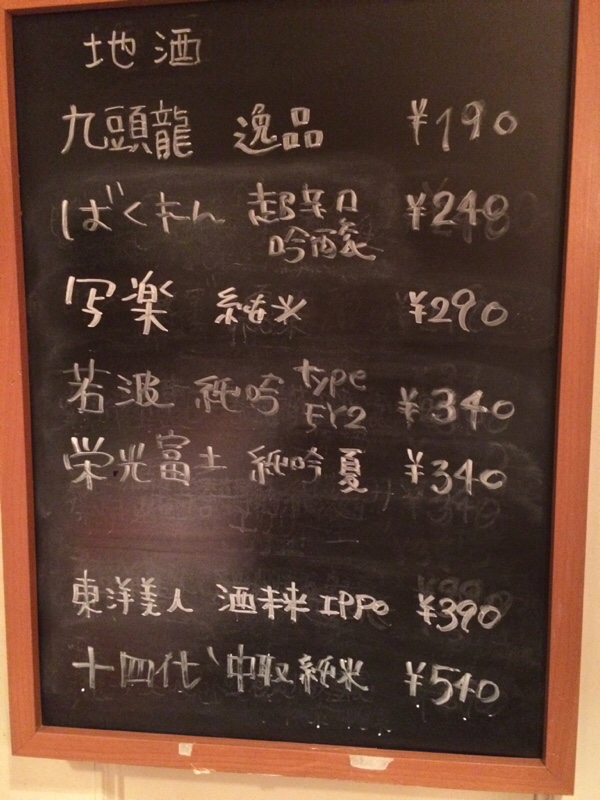 地酒
九頭龍 逸品 ¥190
ばくれん 超辛口 ¥240
吟醸
写楽 純米 ¥290
若波 純吟 type FY2 ¥340
栄光冨士 純吟 夏 ¥340
東洋美人 酒未来 IPPO ¥390
十四代 中取純米 ¥540